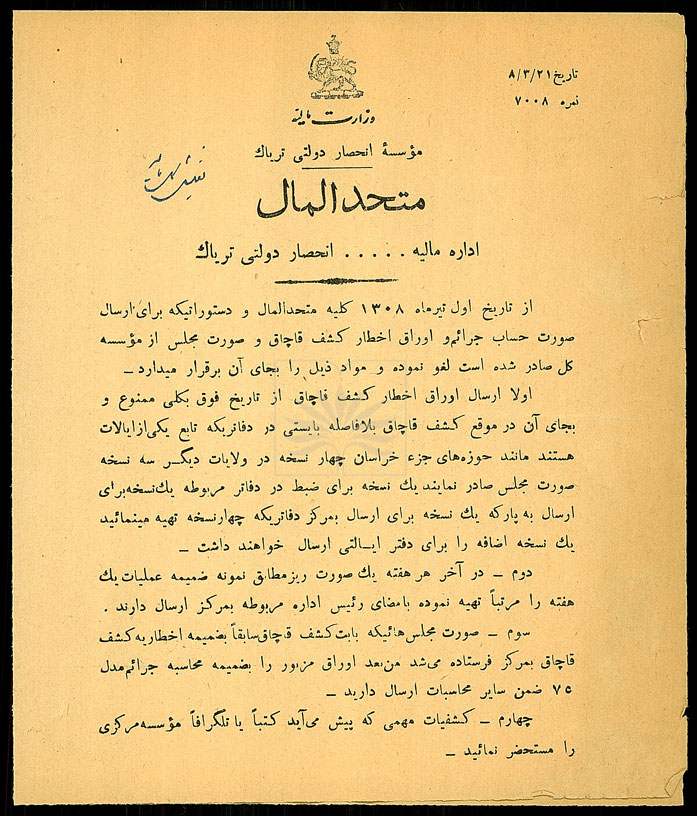 تاریخ ۸/۳/۲۱
نمره ۷۰۰۸
وزارت مالیه
مؤسسهٔ انحصار دولتی تریاك
متحدالمال
اداره مالیه ..... انحصار دولتی تریاك
از تاریخ اول تیرماه ۱۳۰۸ کلیه متحدالمال و دستوراتیکه برای ارسال
صورت حساب جرائم و اوراق اخطار کشف قاچاق و صورت مجلس از مؤسسه
کل صادر شده است لغو نموده و مواد ذیل را بجای آن برقرار میدارد –
اولا ارسال اوراق اخطار کشف قاچاق از تاریخ فوق بکلی ممنوع و
بجای آن در موقع کشف قاچاق بلافاصله بایستی در دفاتریکه تابع یکی از ایالات
هستند مانند حوزه‌های جزء خراسان چهار نسخه در ولایات دیگر سه نسخه
صورت مجلس صادر نمایند یك نسخه برای ضبط در دفاتر مربوطه یك نسخه برای
ارسال به پارکه یك نسخه برای ارسال بمرکز دفاتریکه چهار نسخه تهیه مینمائید
یك نسخه اضافه را برای دفتر ایالتی ارسال خواهند داشت –
دوم – در آخر هر هفته یك صورت ریز مطابق نمونه ضمیمه عملیات یك
هفته را مرتباً تهیه نموده بامضای رئیس اداره مربوطه بمرکز ارسال دارند .
سوم – صورت مجلس‌هائیکه بابت کشف قاچاق سابقاً بضمیمه اخطاریه کشف
قاچاق بمرکز فرستاده می‌شد من‌بعد اوراق مزبور را بضمیمه محاسبه جرائم مدل
۷۵ ضمن سایر محاسبات ارسال دارید –
چهارم – کشفیات مهمی که پیش می‌آید کتباً یا تلگرافاً مؤسسه مرکزی
را مستحضر نمائید –